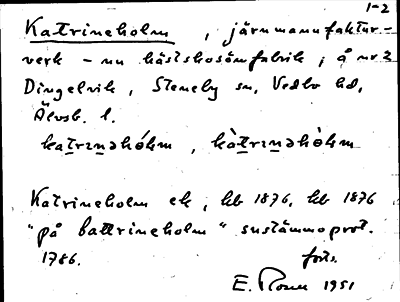 1-2
Katrineholm, järnmanufaktur-
verk - nu hästskosömfabrik, å nr 2
Dingelvik, Steneby sn, Vedbo hd,
Älvsb. l.
Katrineholm ek, hb 1876, hb 1876
"på Cattrineholm" sustämmoprot.
1786.
forts.
E. 1951